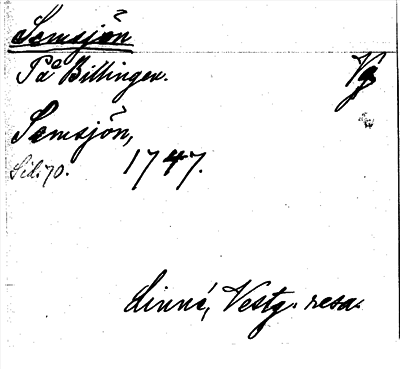 Semsjön
På Billingen. Vg
Semsjön,
Sid. 70. 1747.
Linné, Vestg. resa.